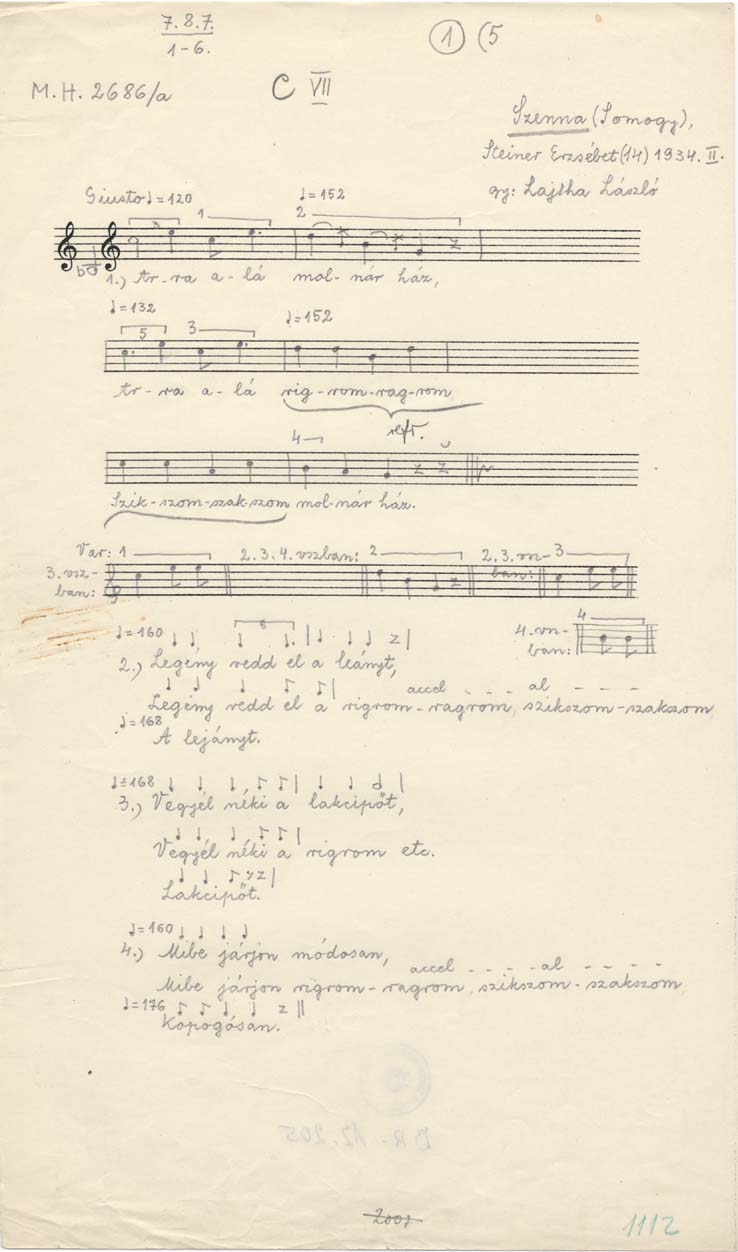 7.8.7.
1-6.
1 (5
M.H. 2686/a
C VII
Szenna (Somogy),
Steiner Erzsébet (14) 1934. II.
gy: Lajtha László
Giusto ♩=120 1 ♩=152 2
1.) Ar-ra a-lá mol-nár ház,
♩=132 5 3 ♩=152
Ar-ra a-lá rig-rom-rag-rom
refr.
4
Szik-szom-szak-szom mol-nár ház.
Var: 1 2.3.4. vszban: 2 2.3. vsz- 3
3. vsz-
ban: ban:
4. vsz- 4
ban:
♩=160
2.) Legény vedd el a leányt,
accel - - - al - - -
Legény vedd el a rigrom-ragrom, szikszom-szakszom
♩=168
A lejányt.
♩=168
3.) Vegyél néki a lakcipőt,
Vegyél néki a rigrom etc.
Lakcipőt.
♩=160
4.) Mibe járjon módosan,
accel - - - - al - - - -
Mibe járjon rigrom-ragrom, szikszom-szakszom
♩=176
Kopogósan.
BR. 12.205
2001
1112